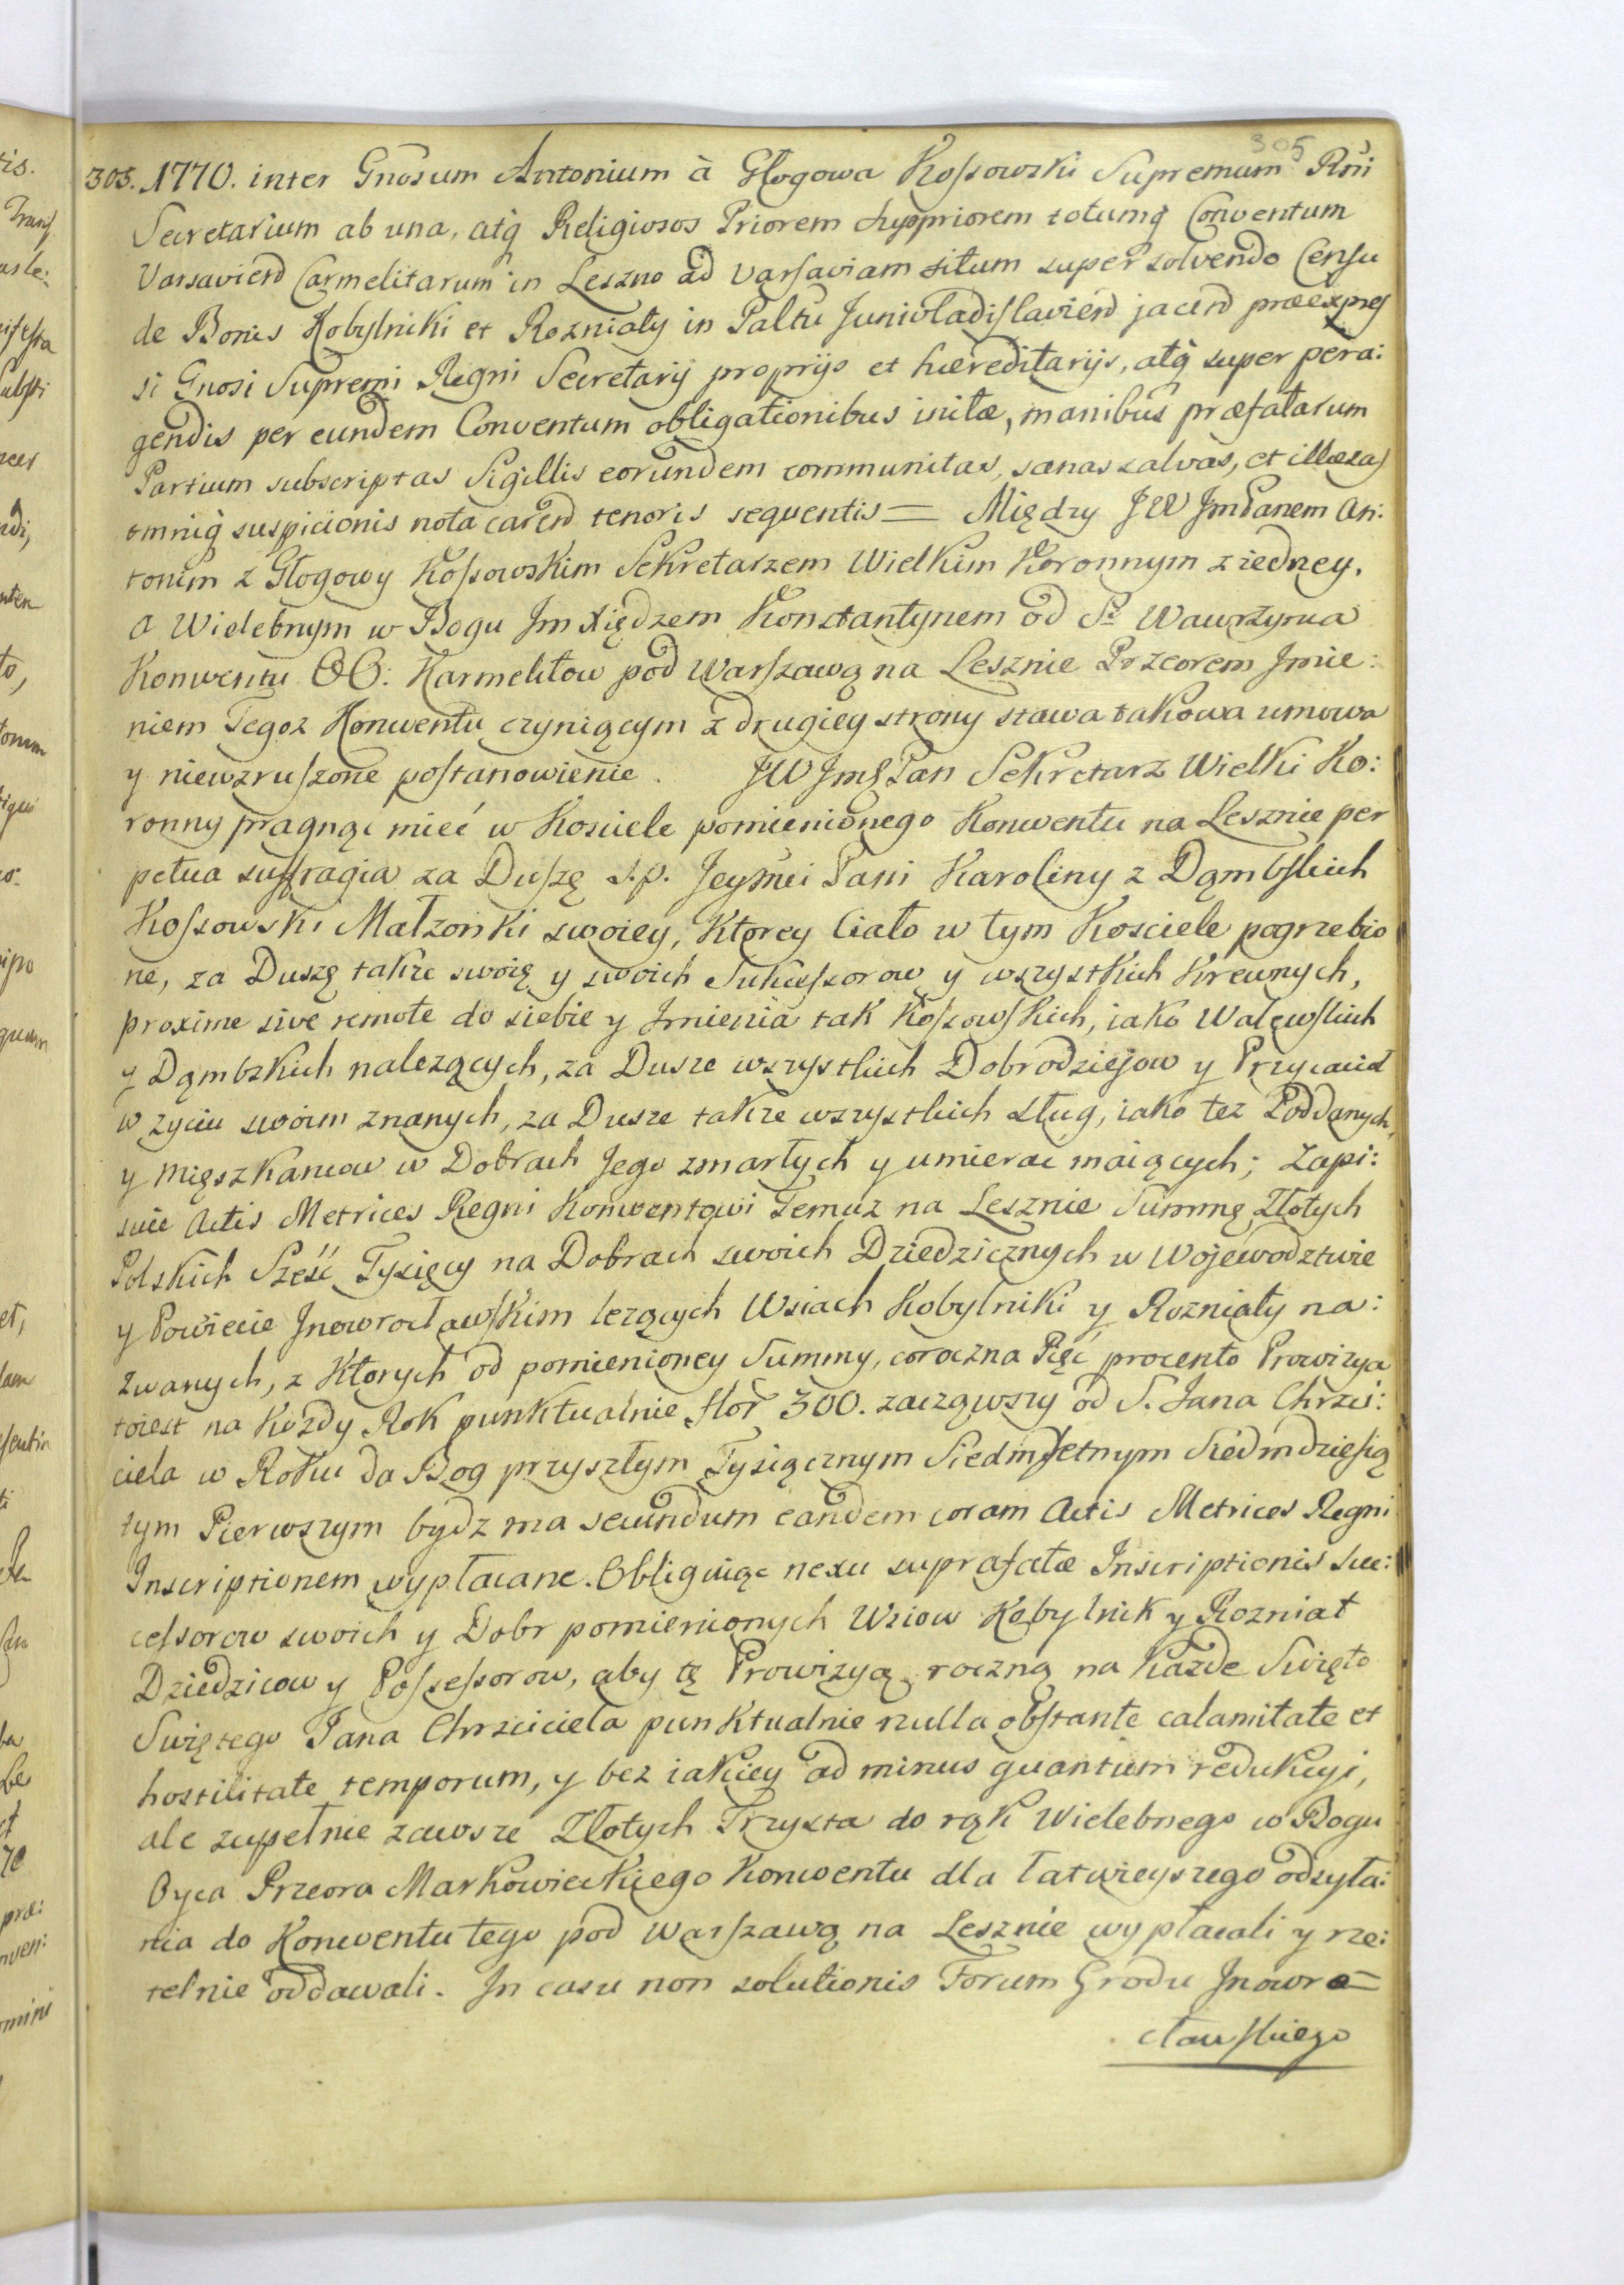 305
305. 1770. inter Gnosum Antonium à Głogowa Kossowski Supremum Rni
Secretarium ab una, atq Religiosos Priorem Suppriorem totumq Conventum
Varsavien Carmelitarum in Leszno ad Varsaviam situm super solvendo Censu
de Bonis Kobylniki et Rozniaty in Paltu Junivladislavien jacen præexpres
si Gnosi Supremi Regni Secretarij proprijs et hæreditarijs, atq super pera:
gendis per eundem Conventum obligationibus initæ, manibus præfatarum
Partium subscriptas Sigillis eorundem communitas, sanas salvas, et illæsas
omniq suspicionis nota caren tenoris sequentis = Między JW JmPanem An:
tonim z Głogowy Kossowskim Sekretarzem Wielkim Koronnym z iedney.
a Wielebnym w Bogu Jm Xiędzem Konstantynem od S. Wawrzynca
Konwentu OO: Karmelitow pod Warszawą na Lesznie Przeorem Jmie:
niem Tegoz Konwentu czyniącym z drugiey strony stawa takowa umowa
y niewzruszone postanowienie. JW JmP Pan Sekretarz Wielki Ko:
ronny pragnąc mieć w Kosciele pomienionego Konwentu na Lesznie per
petua suffragia za Duszę s.p. Jeymci Pani Karoliny z Dąmbskich
Kossowski Małzonki swoiey, Ktorey Ciało w tym Kosciele pogrzebio
ne, za Duszę takze swoię y swoich Sukcessorow y wszystkich Krewnych,
proxime sive remote do siebie y Jmienia tak Kossowskich, iako Walewskich
y Dąmbskich nalezących, za Dusze wszystkich Dobrodziejow y Przyiacioł
w zyciu swoim znanych, za Dusze takze wszystkich Sług, iako tez Poddanych,
y Mięszkancow w Dobrach Jego zmarłych y umierac maiących; Zapi:
suie Actis Metrices Regni Konwentowi Temuz na Lesznie Summę Złotych
Polskich Sześć Tysięcy na Dobrach swoich Dziedzicznych w Wojewodztwie
y Powiecie Jnowrocławskim lezących Wsiach Kobylniki y Rozniaty na:
zwanych, z Ktorych od pomienioney Summy, coroczna Pięć procento Prowizya
toiest na Kozdy Rok punktualnie flor 300. zacząwszy od S. Jana Chrzci:
ciela w Roku da Bog przyszłym Tysiącznym Siedmsetnym Siedmdziesią
tym Pierwszym bydz ma secundum eandem coram Actis Metrices Regni
Inscriptionem wypłacane. Obliguiąc nexu suprafatæ Inscriptionis Suc:
cessorow swoich y Dobr pomienionych Wsiow Kobylnik y Rozniat
Dziedzicow y Possessorow, aby tę Prowizyą roczną na Kazde Swięto
Swiętego Jana Chrzciciela punktualnie nulla obstante calamitate et
hostilitate temporum, y bez iakiey ad minus quantum redukcyi,
ale zupełnie zawsze Złotych Trzysta do rąk Wielebnego w Bogu
Oyca Przeora Markowieckiego Konwentu dla łatwieyszego odsyła:
nia do Konwentu tego pod Warszawą na Lesznie wypłacali y rze:
telnie oddawali. In casu non solutionis Forum Grodu Jnowro=
cławskiego